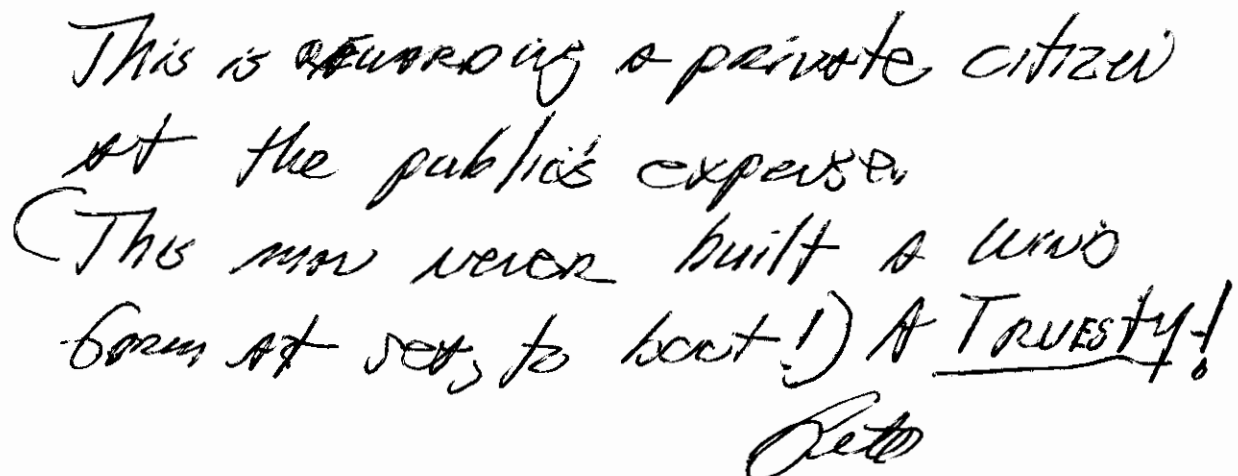 This is rewarding a private citizen
at the public's expense.
(This man never built a wind
farm at sea, to boot!) A TRUESTY!